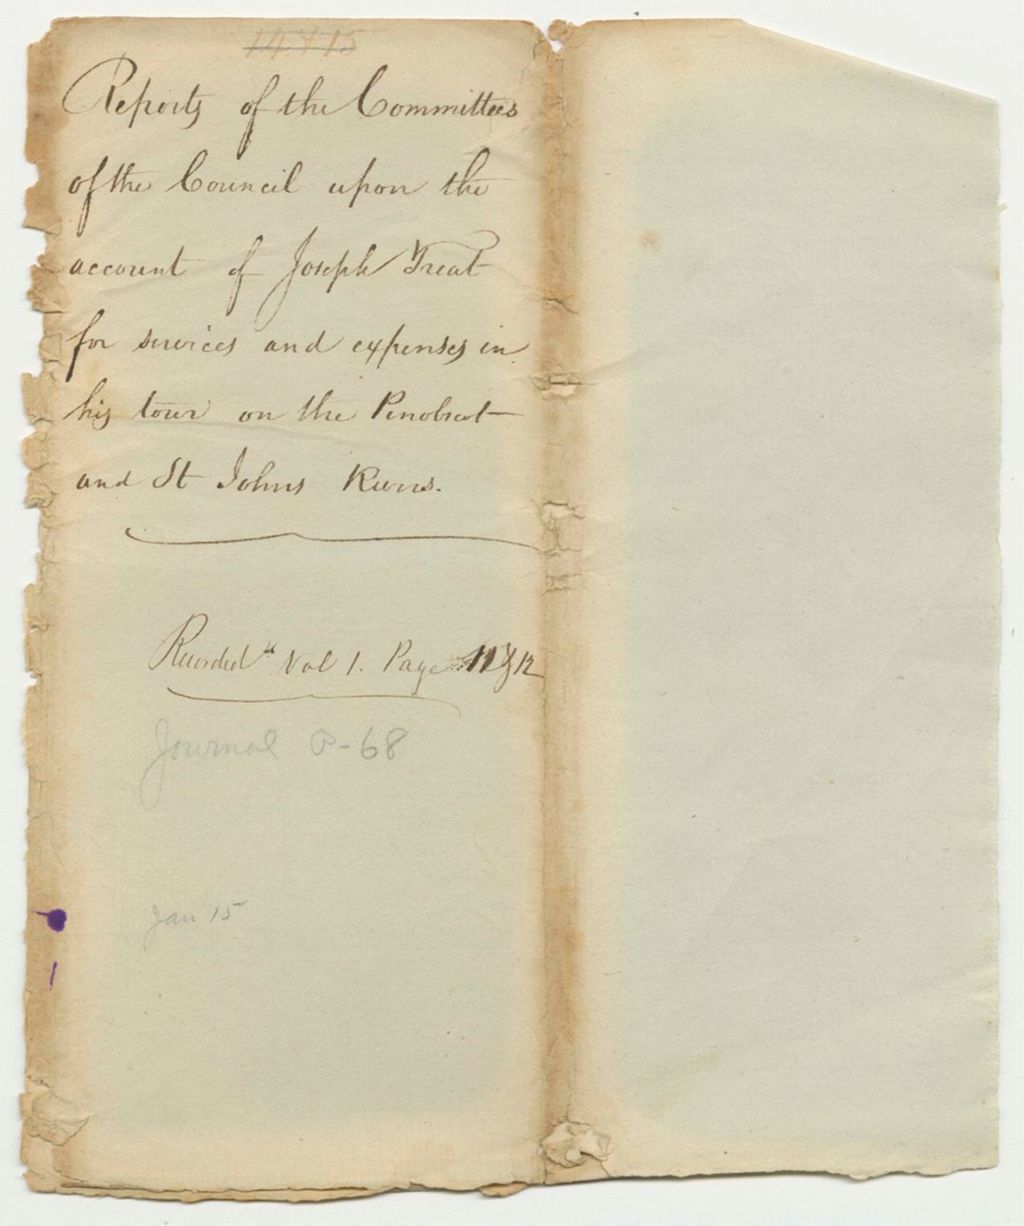 14 & 15
Reports of the Committees
of the Council upon the
account of Joseph Treat
for services and expenses in
his tour on the Penobscot
and St Johns Rivers.
Recorded Vol 1. Page 11 & 12
Journal P-68
Jan 15